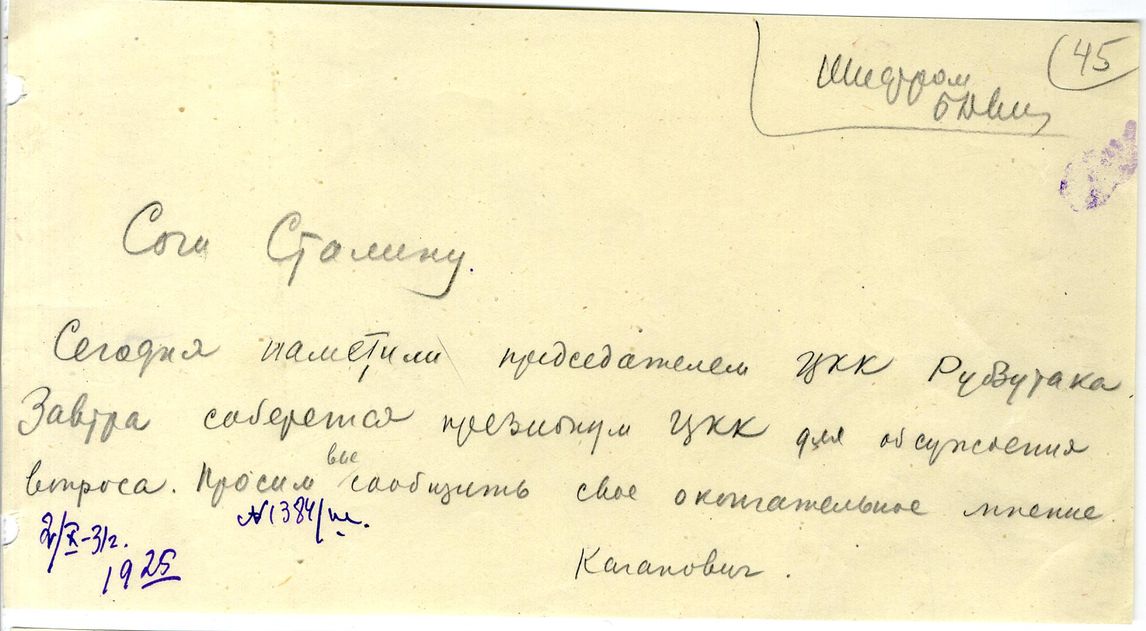 45
Шифром
Сочи Сталину.
Сегодня наметили председателем ЦКК Рудзутака.
Завтра соберется президиум ЦКК для обсуждения
вопроса. Просим вас сообщить свое окончательное мнение.
2/X-31г. №1384/ш.
19 25
Каганович.